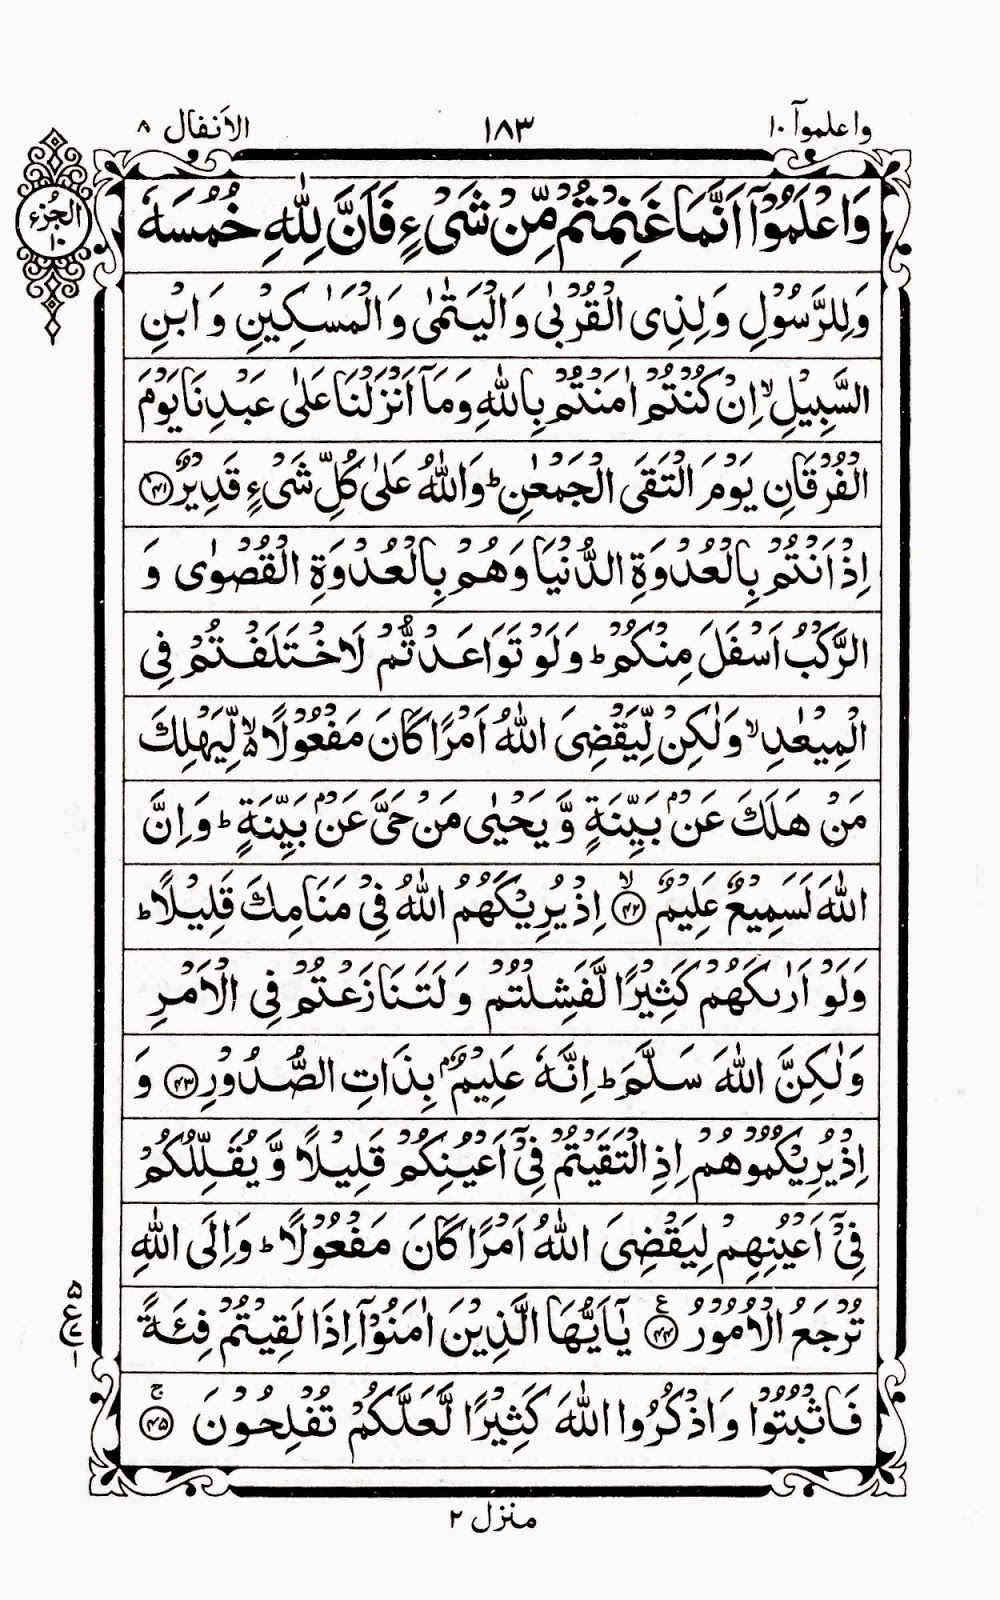 واعلموآ ١٠
١٨٣
الانفال ٨
الجزء
١٠
وَاعْلَمُوْۤا اَنَّمَا غَنِمْتُمْ مِّنْ شَیْءٍ فَاَنَّ لِلّٰهِ خُمُسَهٗ
وَلِلرَّسُوْلِ وَلِذِی الْقُرْبٰی وَالْیَتٰمٰی وَالْمَسٰکِیْنِ وَ ابْنِ
السَّبِیْلِ ۙ اِنْ کُنْتُمْ اٰمَنْتُمْ بِاللّٰهِ وَمَاۤ اَنْزَلْنَا عَلٰی عَبْدِنَا یَوْمَ
الْفُرْقَانِ یَوْمَ الْتَقَی الْجَمْعٰنِ ؕ وَاللّٰهُ عَلٰی کُلِّ شَیْءٍ قَدِیْرٌ ﴿۴۱﴾
اِذْ اَنْتُمْ بِالْعُدْوَةِ الدُّنْیَا وَهُمْ بِالْعُدْوَةِ الْقُصْوٰی وَ
الرَّکْبُ اَسْفَلَ مِنْکُمْ ؕ وَلَوْ تَوَاعَدْتُّمْ لَاخْتَلَفْتُمْ فِی
الْمِیْعٰدِ ۙ وَلٰکِنْ لِّیَقْضِیَ اللّٰهُ اَمْرًا کَانَ مَفْعُوْلًا ۙ۬ لِّیَهْلِکَ
مَنْ هَلَکَ عَنْۢ بَیِّنَةٍ وَّ یَحْیٰی مَنْ حَیَّ عَنْۢ بَیِّنَةٍ ؕ وَ اِنَّ
اللّٰهَ لَسَمِیْعٌ عَلِیْمٌ ﴿ۙ۴۲﴾ اِذْ یُرِیْکَهُمُ اللّٰهُ فِیْ مَنَامِکَ قَلِیْلًا ؕ
وَلَوْ اَرٰىکَهُمْ کَثِیْرًا لَّفَشِلْتُمْ وَ لَتَنَازَعْتُمْ فِی الْاَمْرِ
وَلٰکِنَّ اللّٰهَ سَلَّمَ ؕ اِنَّهٗ عَلِیْمٌۢ بِذَاتِ الصُّدُوْرِ ﴿۴۳﴾ وَ
اِذْ یُرِیْکُمُوْهُمْ اِذِ الْتَقَیْتُمْ فِیْۤ اَعْیُنِکُمْ قَلِیْلًا وَّ یُقَلِّلُکُمْ
فِیْۤ اَعْیُنِهِمْ لِیَقْضِیَ اللّٰهُ اَمْرًا کَانَ مَفْعُوْلًا ؕ وَ اِلَی اللّٰهِ
تُرْجَعُ الْاُمُوْرُ ﴿۴۴﴾ یٰۤاَیُّهَا الَّذِیْنَ اٰمَنُوْۤا اِذَا لَقِیْتُمْ فِئَةً
فَاثْبُتُوْا وَ اذْکُرُوا اللّٰهَ کَثِیْرًا لَّعَلَّکُمْ تُفْلِحُوْنَ ﴿ۚ۴۵﴾
منزل ٢